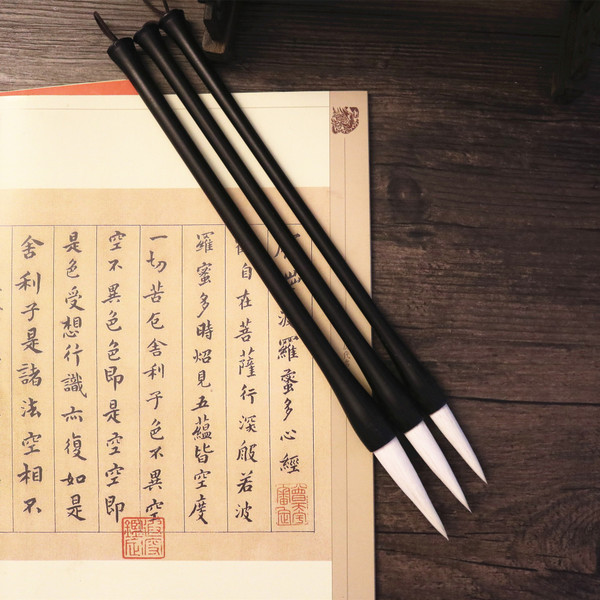 波羅蜜多心經
自在菩薩行深般若波
羅蜜多時炤見五蘊皆空度
一切苦厄舍利子色不異空
空不異色色即是空空即
是色受想行識亦復如是
舍利子是諸法空相不